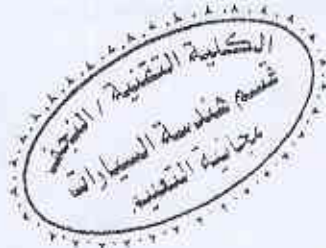 الكلية التقنية / النجف
قسم هندسة السيارات
مجانية التقنية